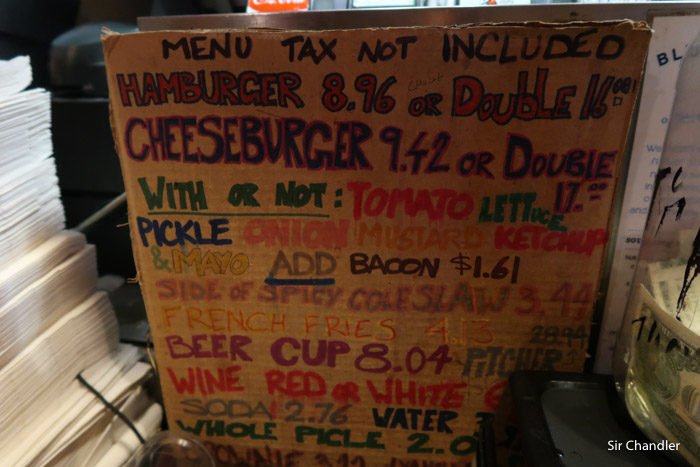 MENU TAX NOT INCLUDED
HAMBURGER 8.96 OR DOUBLE 16.00
CHEESEBURGER 9.42 OR DOUBLE
WITH OR NOT: TOMATO LETTUCE 17.00
PICKLE ONION MUSTARD KETCHUP
& MAYO ADD BACON $1.61
SIDE OF SPICY COLESLAW 3.44
FRENCH FRIES 4.13 28.94
BEER CUP 8.04 PITCHER
WINE RED OR WHITE
SODA! 2.76 WATER
WHOLE PICLE 2.0
BROWNIE
BL
Sir Chandler